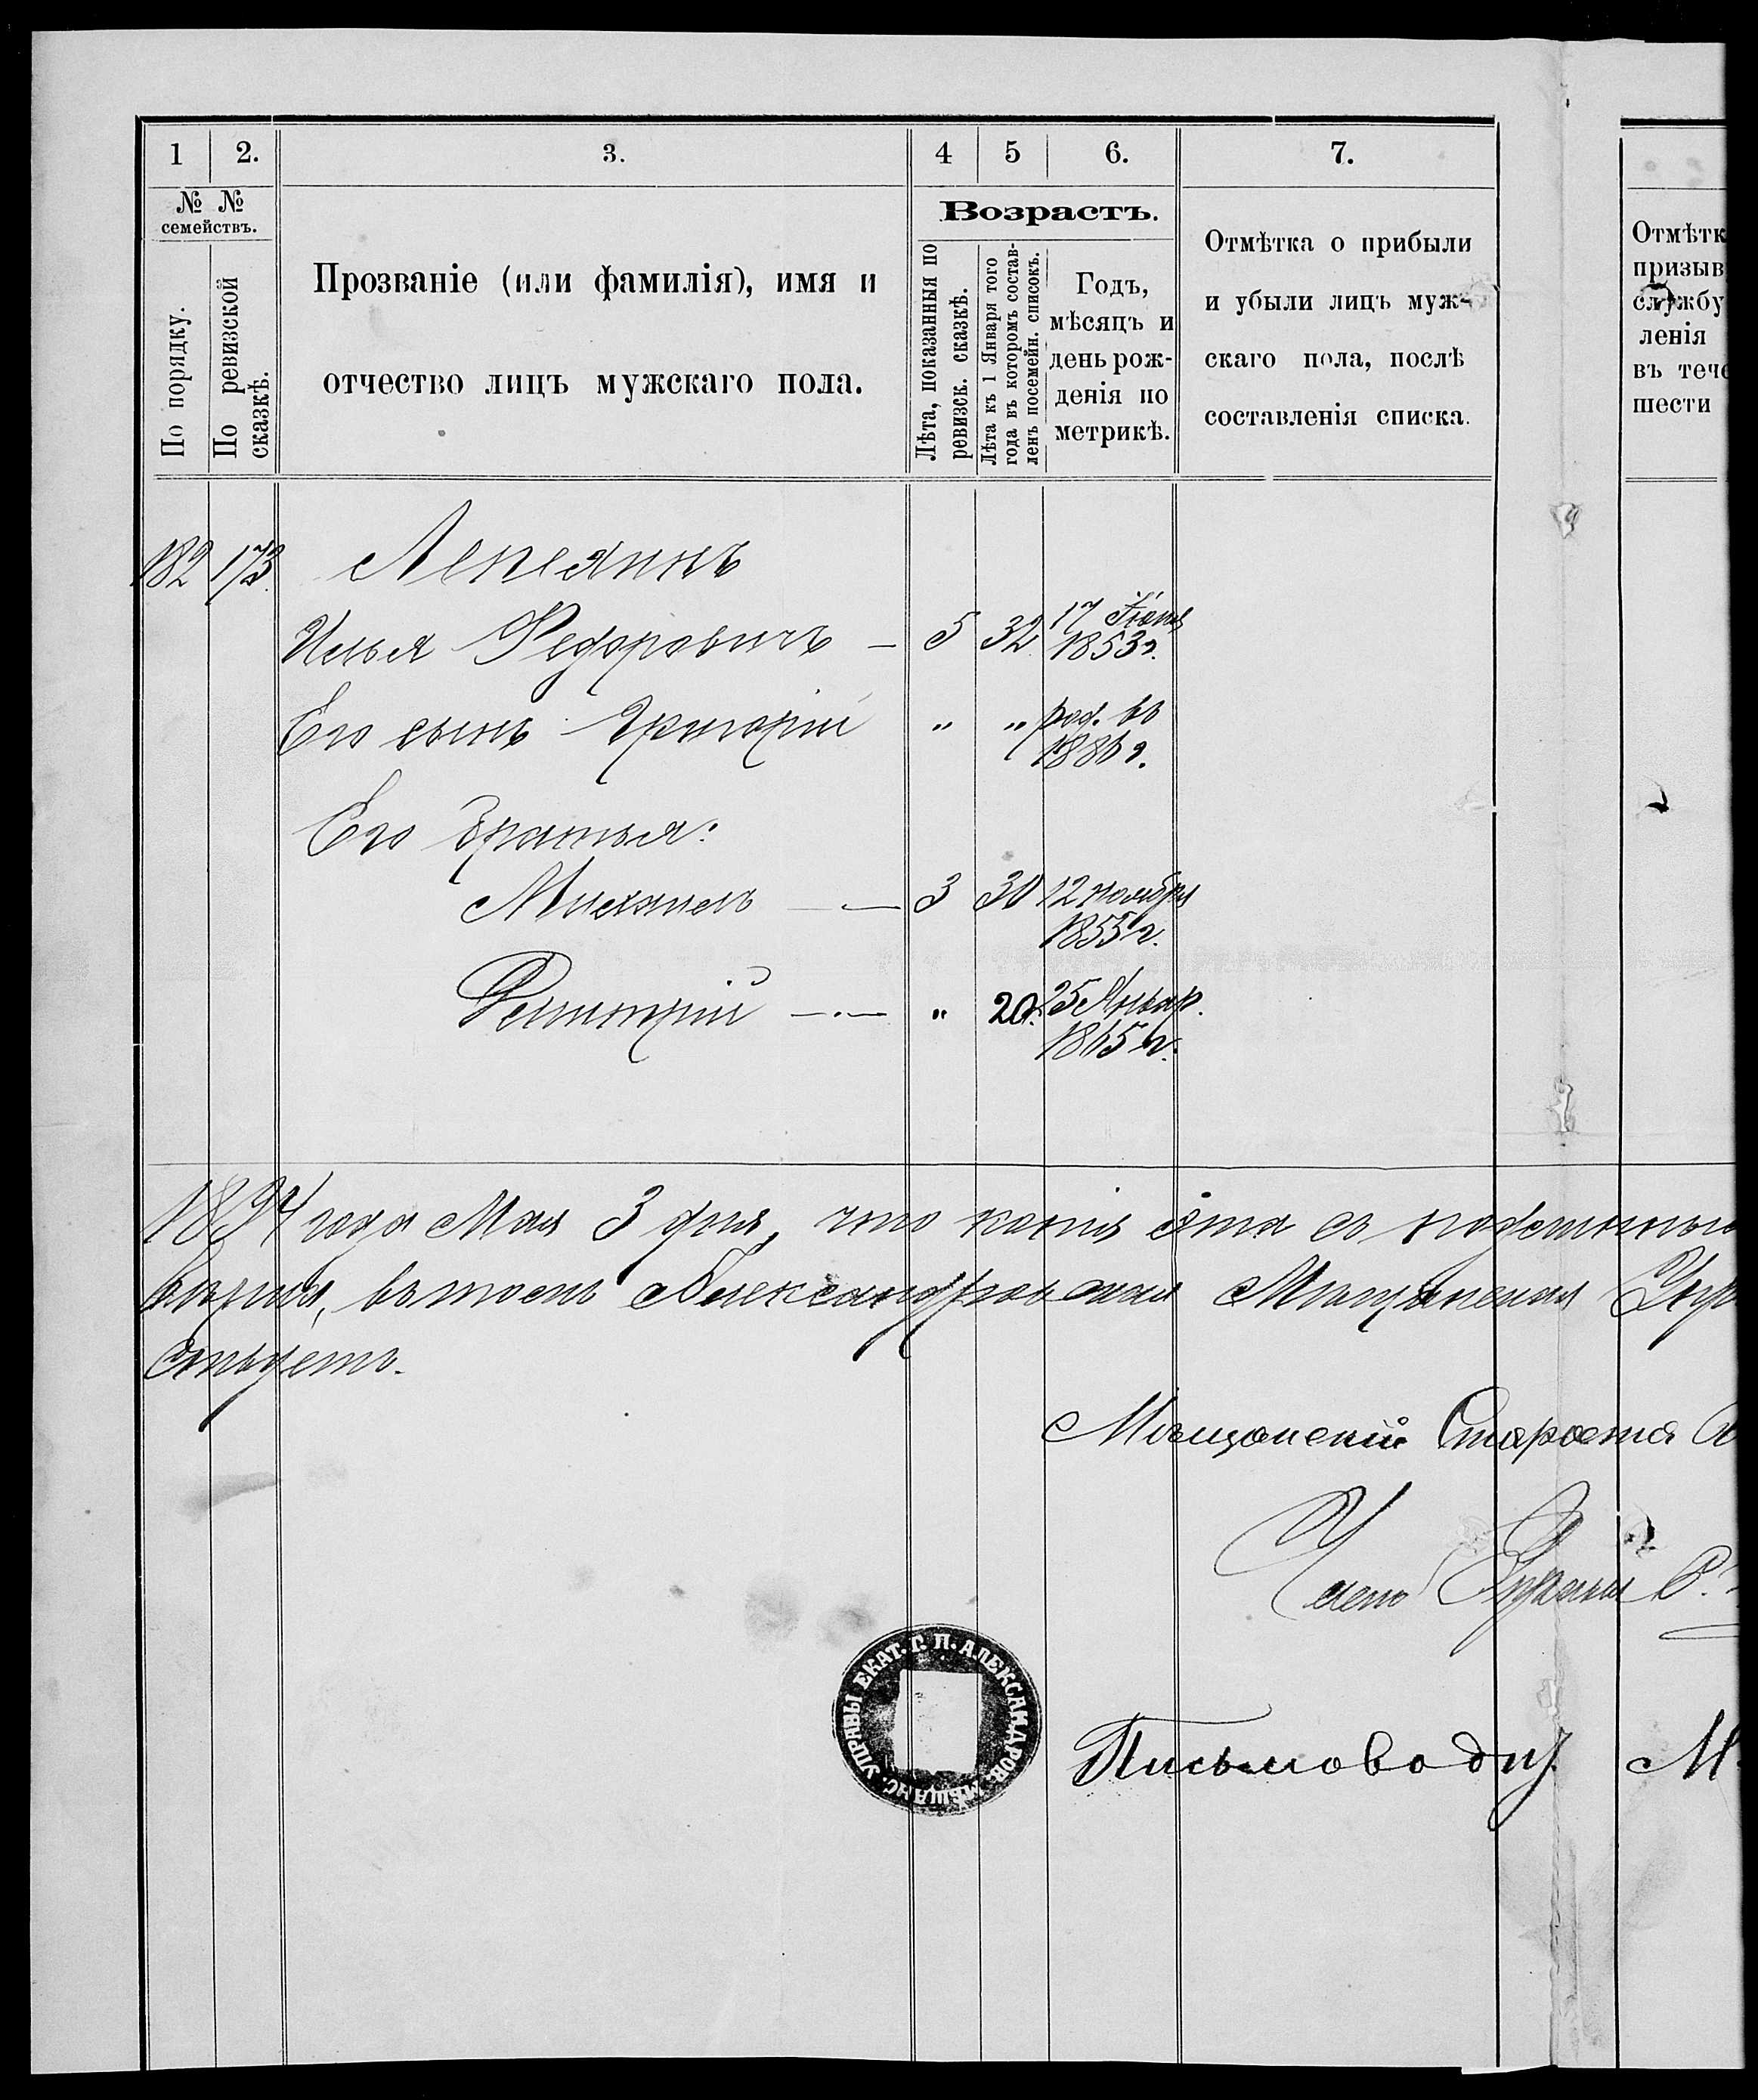 1 2. 3. 4 5 6. 7.
№ №
семействъ.
По порядку.
По ревизской
сказкѣ.
Прозваніе (или фамилія), имя и
отчество лицъ мужскаго пола.
Возрастъ.
Лѣта, показанныя по
ревизск. сказкѣ.
Лѣта къ 1 Января того
года въ которомъ состав-
ленъ посемейн. списокъ.
Годъ,
мѣсяцъ и
день рож-
денія по
метрикѣ.
Отмѣтка о прибыли
и убыли лицъ муж-
скаго пола, послѣ
составленія списка.
Отмѣтк
призыв
службу
ленія
въ тече
шести
182 173 Лепехинъ
Илья Федоровичъ — 5 32 17 Іюня
1853 г.
Его сынъ Григорій " " род. въ
1886 г.
Его братья:
Михаилъ — 3 30 12 Ноября
1855 г.
Димитрій — " 20. 25 Январ.
1865 г.
1894 года Мая 3 дня, что копія эта съ подлинным
вѣрна, въ томъ Александровская Мѣщанская Упр
ствуетъ.
Мѣщанскій Староста
Членъ Управы
УПРАВЫ ЕКАТ. Г. П. АЛЕКСАНДРОВ. МѢЩАНС.
Письмовод М